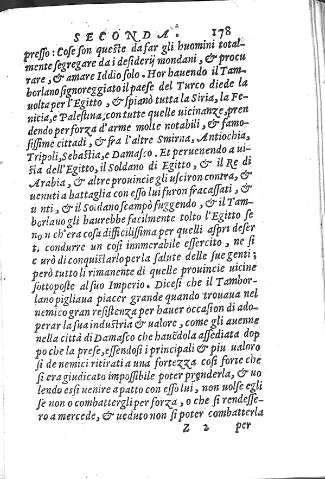 SECONDA. 178
presso: Cose son queste da far gli huomini total-
mente segregare da i desiderij mondani, & procu
rare, & amare Iddio solo. Hor hauendo il Tam-
borlano signoreggiato il paese del Turco diede la
uolta per l'Egitto, & spianò tutta la Siria, la Fe-
nicia, e Palestina, con tutte quelle uicinanze, pren
dendo per forza d'arme molte notabili, & famo-
sissime cittadi, & fra l'altre Smirna, Antiochia,
Tripoli, Sebastia, e Damasco. Et peruenendo a ui-
sta dell'Egitto, il Soldano di Egitto, & il Re di
Arabia, & altre prouincie gli usciron contra, &
uenuti a battaglia con esso lui furon fracassati, &
uinti, & il Soldano scampò fuggendo, & il Tam-
borlano gli haurebbe facilmente tolto l'Egitto se
non ch'era cosa difficilissima per quelli aspri deser
ti condurre un così innmerabile essercito, ne si
curò di conquistarlo per la salute delle sue genti;
però tutto il rimanente di quelle prouincie uicine
sottopose al suo Imperio. Dicesi che il Tambor-
lano pigliaua piacer grande quando trouaua nel
nemico gran resistenza per hauer occasion di ado-
perar la sua industria & ualore, come gli auenne
nella città di Damasco che hauēdola assediata dop
po che la prese, essendosi i principali & piu ualoro
si de nemici ritirati a una fortezza così forte che
si era giudicato impossibile poter prenderla, & uo
lendo essi uenire a patto con esso lui, non uolse egli
se non o combattergli per forza, o che si rendesse-
ro a mercede, & ueduto non si poter combatterla
Z 2 per